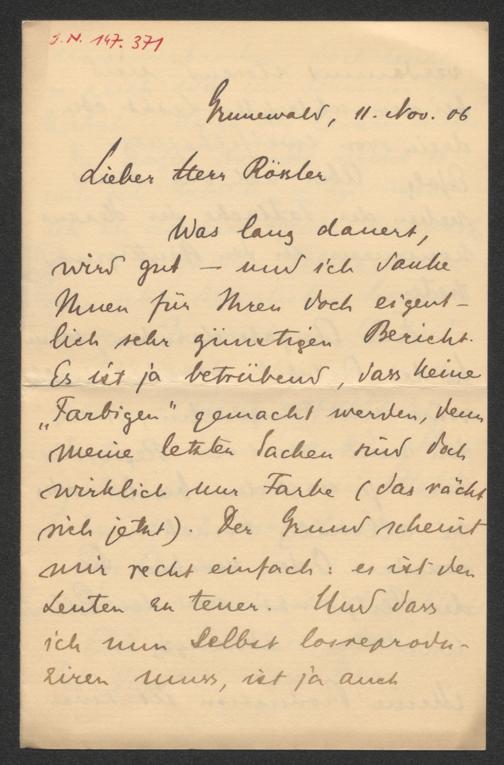 J.N. 147.371
Grunewald, 11. Nov. 06
Lieber Herr Rößler
Was lang dauert,
wird gut — und ich danke
Ihnen für Ihren doch eigent-
lich sehr günstigen Bericht.
Es ist ja betrübend, dass keine
„Farbigen" gemacht werden, denn
meine letzten Sachen sind doch
wirklich nur Farbe (das rächt
sich jetzt). Der Grund scheint
mir recht einfach: es ist den
Leuten zu teuer. Und dass
ich nun selbst losreprodu-
ziren muss, ist ja auch